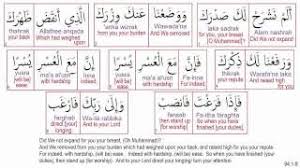 أَلَمْ نَشْرَحْ لَكَ صَدْرَكَ وَوَضَعْنَا عَنكَ وِزْرَكَ الَّذِي أَنقَضَ
Alam nashrah laka sadrak Wawada'na 'anka wizrak Allathee anqada
Did We not expand for you your breast (O Muhammad)? And We removed from you your burden Which had weighed upon
ظَهْرَكَ وَرَفَعْنَا لَكَ ذِكْرَكَ فَإِنَّ مَعَ الْعُسْرِ يُسْرًا إِنَّ مَعَ الْعُسْرِ يُسْرًا
thahrak Warafa'na laka thikrak Fa-inna ma'a al'usri yusra Inna ma'a al'usri yusra
your back And raised high for you your repute For indeed with hardship ease Indeed with hardship ease
فَإِذَا فَرَغْتَ فَانصَبْ وَإِلَىٰ رَبِّكَ فَارْغَب
So when you have finished (your duties) then stand up (for worship) And to your Lord
Did We not expand for you your breast, (Oh Muhammad)?
And We removed from you your burden which had weighed upon your back, and raised high for you your repute?
For indeed, with hardship, will be ease. Indeed with hardship, will be ease. So when you have finished (your
duties), then stand up (for worship). And to your Lord direct your longing turn your attention.
94:1-8